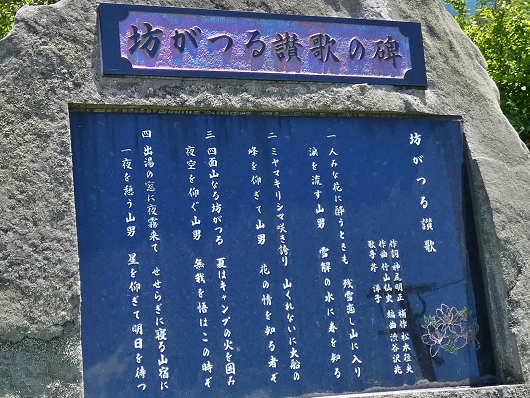 坊がつる讃歌の碑
坊がつる讃歌
作詞 神尾明正 補作 松本徰夫
作曲 竹山仙史 編曲 渋谷沢兆
歌手 芹 洋子
一 人みな花に酔うときも 残雪恋し山に入り
涙を流す山男 雪解の水に春を知る
二 ミヤマキリシマ咲き誇り 山くれないに大船の
峰を仰ぎて山男 花の情を知る者ぞ
三 四面山なる坊がつる 夏はキャンプの火を囲み
夜空を仰ぐ山男 無我を悟るはこの時ぞ
四 出湯の窓に夜霧来て せせらぎに寝る山宿に
一夜を憩う山男 星を仰ぎて明日を待つ